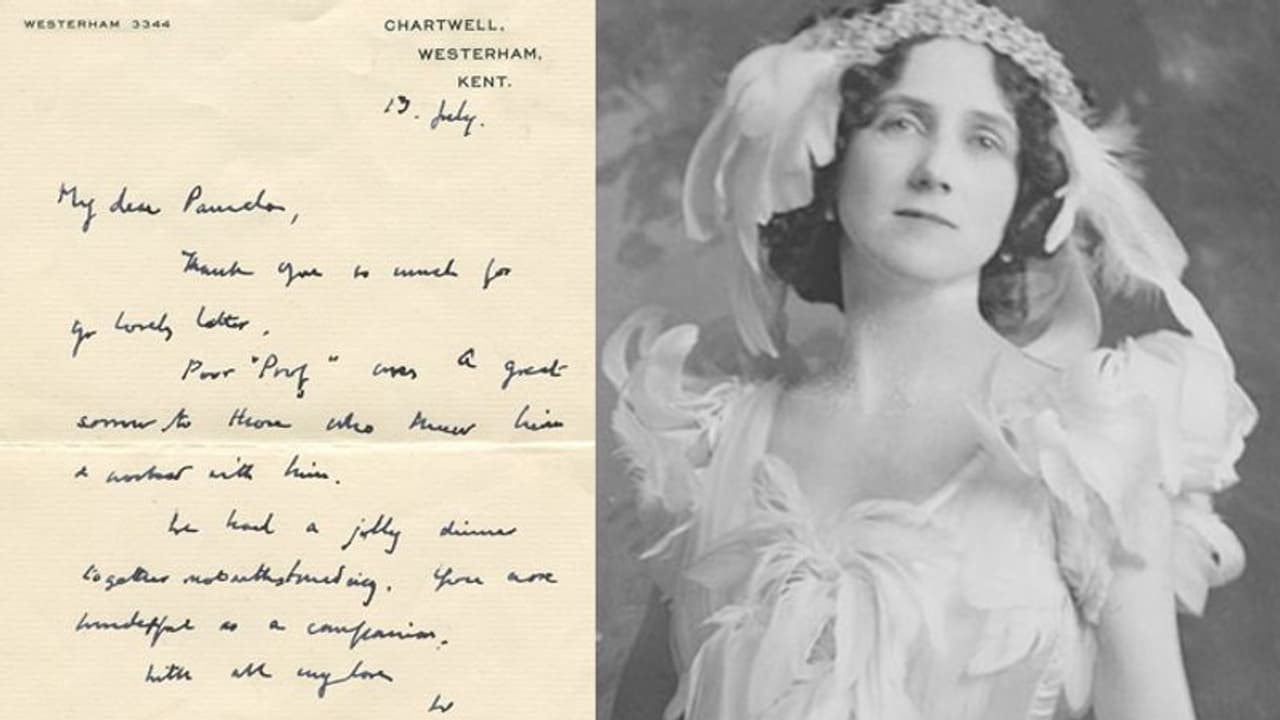 WESTERHAM 3344
CHARTWELL,
WESTERHAM,
KENT.
13. July.
My dear Pamela,
Thank you so much for
yr lovely letter.
Poor "Prof" was a great
sorrow to those who knew him
& worked with him.
We had a jolly dinner
together notwithstanding. You were
wonderful as a companion.
With all my love
W